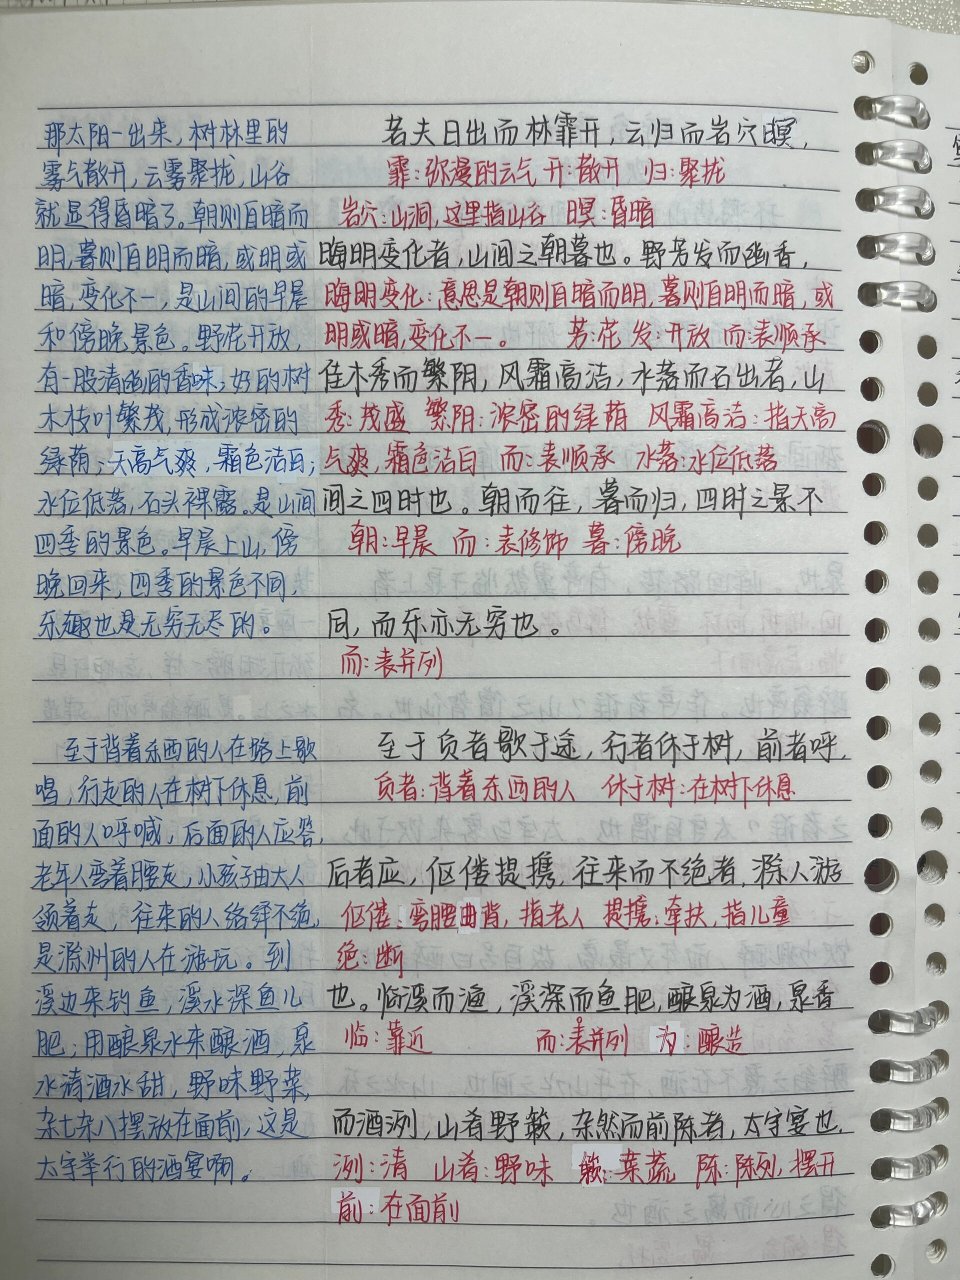 那太阳一出来，树林里的
雾气散开，云雾聚拢，山谷
就显得昏暗了。朝则自暗而
明，暮则自明而暗，或明或
暗，变化不一，是山间的早晨
和傍晚景色。野花开放，
有一股清幽的香味，好的树
木枝叶繁茂，形成浓密的
绿荫；天高气爽，霜色洁白；
水位低落，石头裸露。是山间
四季的景色。早晨上山，傍
晚回来，四季的景色不同，
乐趣也是无穷无尽的。
若夫日出而林霏开，云归而岩穴暝，
霏：弥漫的云气 开：散开 归：聚拢
岩穴：山洞，这里指山谷 暝：昏暗
晦明变化者，山间之朝暮也。野芳发而幽香，
晦明变化：意思是朝则自暗而明，暮则自明而暗，或
明或暗，变化不一。 芳：花 发：开放 而：表顺承
佳木秀而繁阴，风霜高洁，水落而石出者，山
秀：茂盛 繁阴：浓密的绿荫 风霜高洁：指天高
气爽，霜色洁白 而：表顺承 水落：水位低落
间之四时也。朝而往，暮而归，四时之景不
朝：早晨 而：表修饰 暮：傍晚
同，而乐亦无穷也。
而：表并列
至于背着东西的人在路上歌
唱，行走的人在树下休息，前
面的人呼喊，后面的人应答，
老年人弯着腰走，小孩子由大人
领着走，往来的人络绎不绝，
是滁州的人在游玩。到
溪边来钓鱼，溪水深鱼儿
肥；用酿泉水来酿酒，泉
水清酒水甜，野味野菜，
杂七杂八摆放在面前，这是
太守举行的酒宴啊。
至于负者歌于途，行者休于树，前者呼，
负者：背着东西的人 休于树：在树下休息
后者应，伛偻提携，往来而不绝者，滁人游
伛偻：弯腰曲背，指老人 提携：牵扶，指儿童
绝：断
也。临溪而渔，溪深而鱼肥，酿泉为酒，泉香
临：靠近 而：表并列 为：酿造
而酒洌，山肴野蔌，杂然而前陈者，太守宴也。
洌：清 山肴：野味 蔌：菜蔬 陈：陈列，摆开
前：在面前